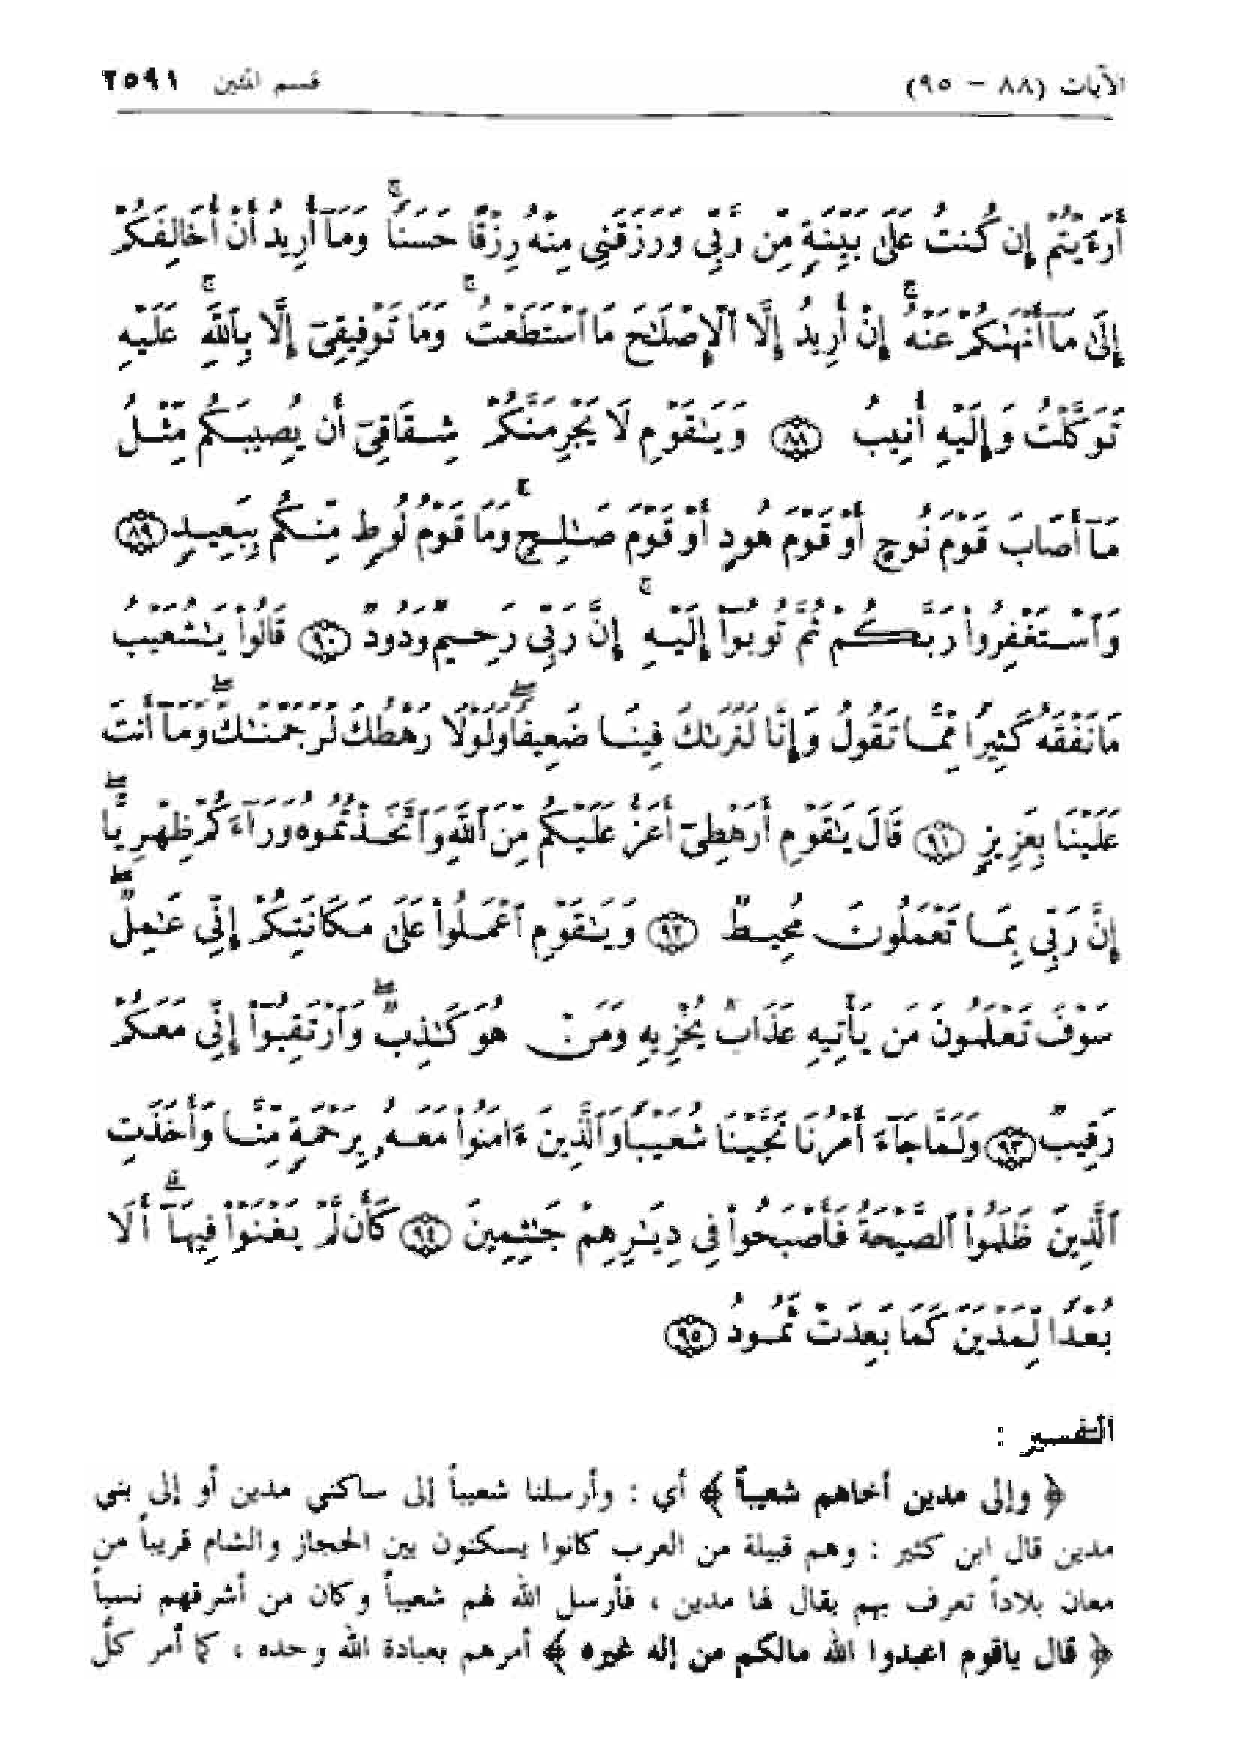 الآيات (٨٨ - ٩٥) قسم المئين ٢٥٩١
أَرَءَيْتُمْ إِن كُنتُ عَلَىٰ بَيِّنَةٍ مِّن رَّبِّى وَرَزَقَنِى مِنْهُ رِزْقًا حَسَنًا ۚ وَمَآ أُرِيدُ أَنْ أُخَالِفَكُمْ
إِلَىٰ مَآ أَنْهَىٰكُمْ عَنْهُ ۚ إِنْ أُرِيدُ إِلَّا ٱلْإِصْلَٰحَ مَا ٱسْتَطَعْتُ ۚ وَمَا تَوْفِيقِىٓ إِلَّا بِٱللَّهِ ۚ عَلَيْهِ
تَوَكَّلْتُ وَإِلَيْهِ أُنِيبُ ﴿٨٨﴾ وَيَٰقَوْمِ لَا يَجْرِمَنَّكُمْ شِقَاقِىٓ أَن يُصِيبَكُم مِّثْلُ
مَآ أَصَابَ قَوْمَ نُوحٍ أَوْ قَوْمَ هُودٍ أَوْ قَوْمَ صَٰلِحٍ ۚ وَمَا قَوْمُ لُوطٍ مِّنكُم بِبَعِيدٍ ﴿٨٩﴾
وَٱسْتَغْفِرُوا۟ رَبَّكُمْ ثُمَّ تُوبُوٓا۟ إِلَيْهِ ۚ إِنَّ رَبِّى رَحِيمٌ وَدُودٌ ﴿٩٠﴾ قَالُوا۟ يَٰشُعَيْبُ
مَا نَفْقَهُ كَثِيرًا مِّمَّا تَقُولُ وَإِنَّا لَنَرَىٰكَ فِينَا ضَعِيفًا ۖ وَلَوْلَا رَهْطُكَ لَرَجَمْنَٰكَ ۖ وَمَآ أَنتَ
عَلَيْنَا بِعَزِيزٍ ﴿٩١﴾ قَالَ يَٰقَوْمِ أَرَهْطِىٓ أَعَزُّ عَلَيْكُم مِّنَ ٱللَّهِ وَٱتَّخَذْتُمُوهُ وَرَآءَكُمْ ظِهْرِيًّا ۖ
إِنَّ رَبِّى بِمَا تَعْمَلُونَ مُحِيطٌ ﴿٩٢﴾ وَيَٰقَوْمِ ٱعْمَلُوا۟ عَلَىٰ مَكَانَتِكُمْ إِنِّى عَٰمِلٌ ۖ
سَوْفَ تَعْلَمُونَ مَن يَأْتِيهِ عَذَابٌ يُخْزِيهِ وَمَنْ هُوَ كَٰذِبٌ ۖ وَٱرْتَقِبُوٓا۟ إِنِّى مَعَكُمْ
رَقِيبٌ ﴿٩٣﴾ وَلَمَّا جَآءَ أَمْرُنَا نَجَّيْنَا شُعَيْبًا وَٱلَّذِينَ ءَامَنُوا۟ مَعَهُۥ بِرَحْمَةٍ مِّنَّا وَأَخَذَتِ
ٱلَّذِينَ ظَلَمُوا۟ ٱلصَّيْحَةُ فَأَصْبَحُوا۟ فِى دِيَٰرِهِمْ جَٰثِمِينَ ﴿٩٤﴾ كَأَن لَّمْ يَغْنَوْا۟ فِيهَآ ۗ أَلَا
بُعْدًا لِّمَدْيَنَ كَمَا بَعِدَتْ ثَمُودُ ﴿٩٥﴾
التفسير :
﴿ وإلى مدين أخاهم شعيباً ﴾ أي : وأرسلنا شعيباً إلى ساكني مدين أو إلى بني
مدين قال ابن كثير : وهم قبيلة من العرب كانوا يسكنون بين الحجاز والشام قريباً من
معان بلاداً تعرف بهم يقال لها مدين ، فأرسل الله لهم شعيباً وكان من أشرفهم نسباً
﴿ قال ياقوم اعبدوا الله مالكم من إله غيره ﴾ أمرهم بعبادة الله وحده ، كما أمر كلُّ